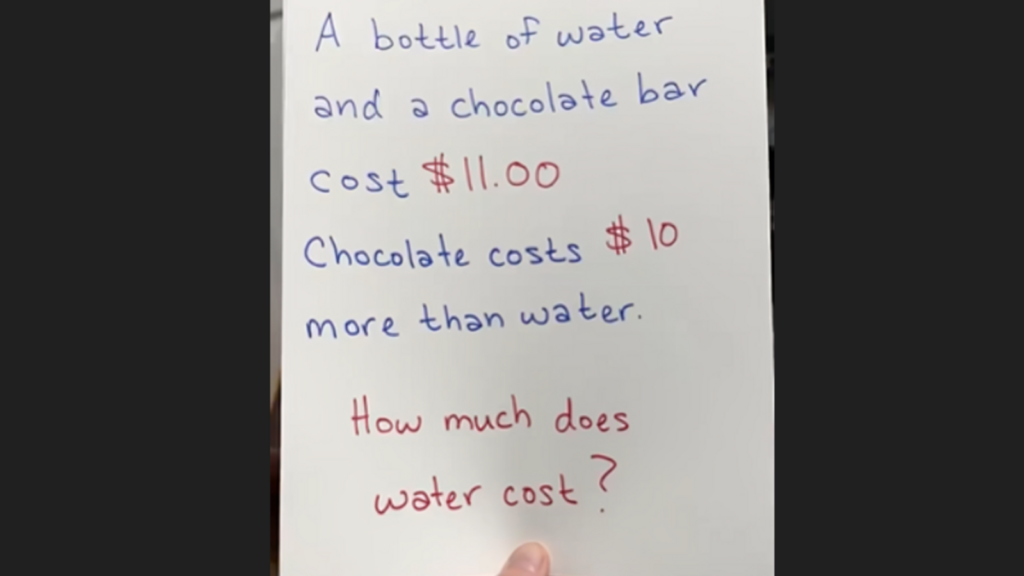 A bottle of water
and a chocolate bar
cost $11.00
Chocolate costs $10
more than water.
How much does
water cost?